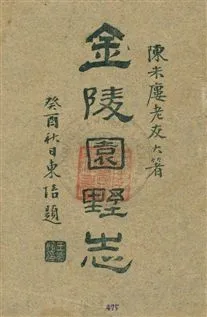 陳朱廔老友大箸
金陵園野志
癸酉秋日東培題
475